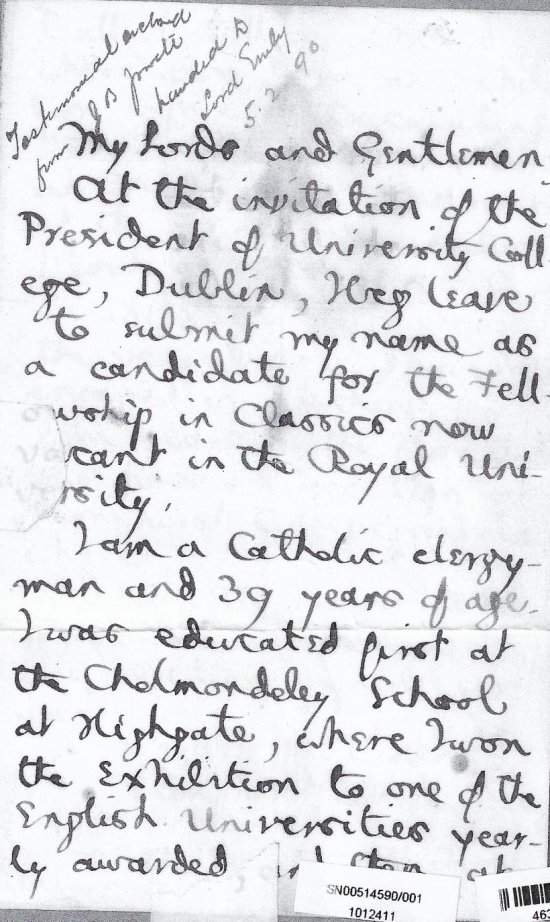 Testimonial enclosed
from J B
handed to
Lord Emly
5. 2 90
My Lords and Gentlemen,
At the invitation of the
President of University Coll-
ege, Dublin, I beg leave
to submit my name as
a candidate for the Fell-
owship in Classics now
vacant in the Royal Uni-
versity.
I am a Catholic clergy-
man and 39 years of age.
I was educated first at
the Cholmondeley School
at Highgate, where I won
the Exhibition to one of the
English Universities year-
ly awarded, and then at
SN00514590/001
1012411